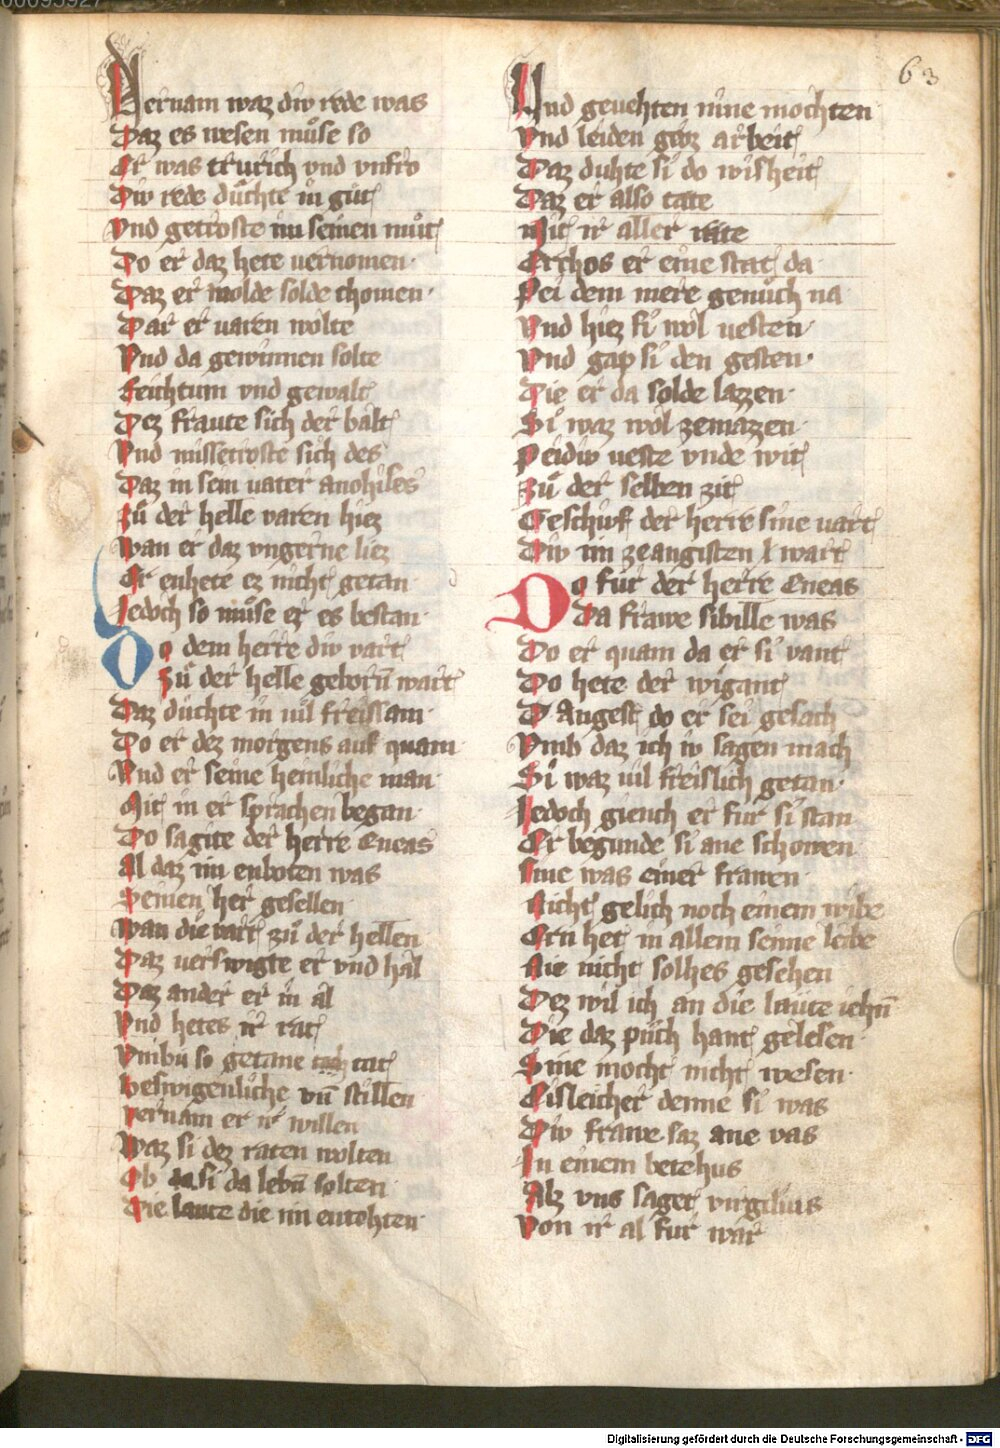 63
Vernam waz div rede was
Daz es wesen muͦse so
Er was trurich vnd vnfro
Div rede duͦchte in guͦt
Vnd getroste im seinen muͦt
Do er daz hete uernomen
Daz er wolde solde chomen
Dar er uaren wolte
Vnd da gewinnen solte
Reichtum vnd gewalt
Dez fraute sich der balt
Vnd missetroste sich des
Daz in sein uater anchises
Zuͦ der helle varen hiez
Wan er daz vngerne liez
Er enhete ez nicht getan
Jedoch so muͦse er es bestan
Do dem herre div vart
Zuͦ der helle geborn̄ wart
Daz duͦchte in uil freissam
Do er dez morgens auf quam
Vnd er seine heinliche man
Mit in er sprachen began
Do sagite der herre Eneas
Al daz im enboten was
Seinen her gesellen
Wan die vart zuͦ der hellen
Daz uerswigte er vnd hal
Daz ander er in al
Vnd hetes ir rat
Vmbu so getane tat
Veswigenliche vn̄ stillen
Vernam er ir willen
Waz si dez raten wolten
Ob da si da lebn̄ solten
Die laute die im entohten
Vnd geuehten nine mochten
Vnd leiden groz arbeit
Daz duhte si do wisheit
Daz er also tate
Mit ir aller rate
Erchos er eine stat da
Pei dem mere genuͦch na
Vnd hiez si wol uesten
Vnd gap si den gesten
Die er da solde lazzen
Si waz wol zemazzen
Peidiv ueste vnde wit
Zuͦ der selben zit
Geschuf der herre sine uart
Div im zeangisten wart
Do fur der herre Eneas
Da frawe sibille was
Do er quam da er si vant
Do hete der wigant
D Angest do er sei gesach
Vmb daz ich iv sagen mach
Si waz uil freislich getan
Jedoch giench er fur si stan
Er begunde si ane schowen
Sine was einer frauen
Nicht gelich noch einem wibe
Ern het in allem seinne leibe
Nie nicht solhes gesehen
Dez wil ich an die laute iehn̄
Die daz puͦch hant gelesen
Sine mocht nicht wesen
Eisleicher denne si was
Div frawe saz ane vas
In einem betehus
Alz vns saget virgilius
Von ir al fur war
Digitalisierung gefördert durch die Deutsche Forschungsgemeinschaft - DFG